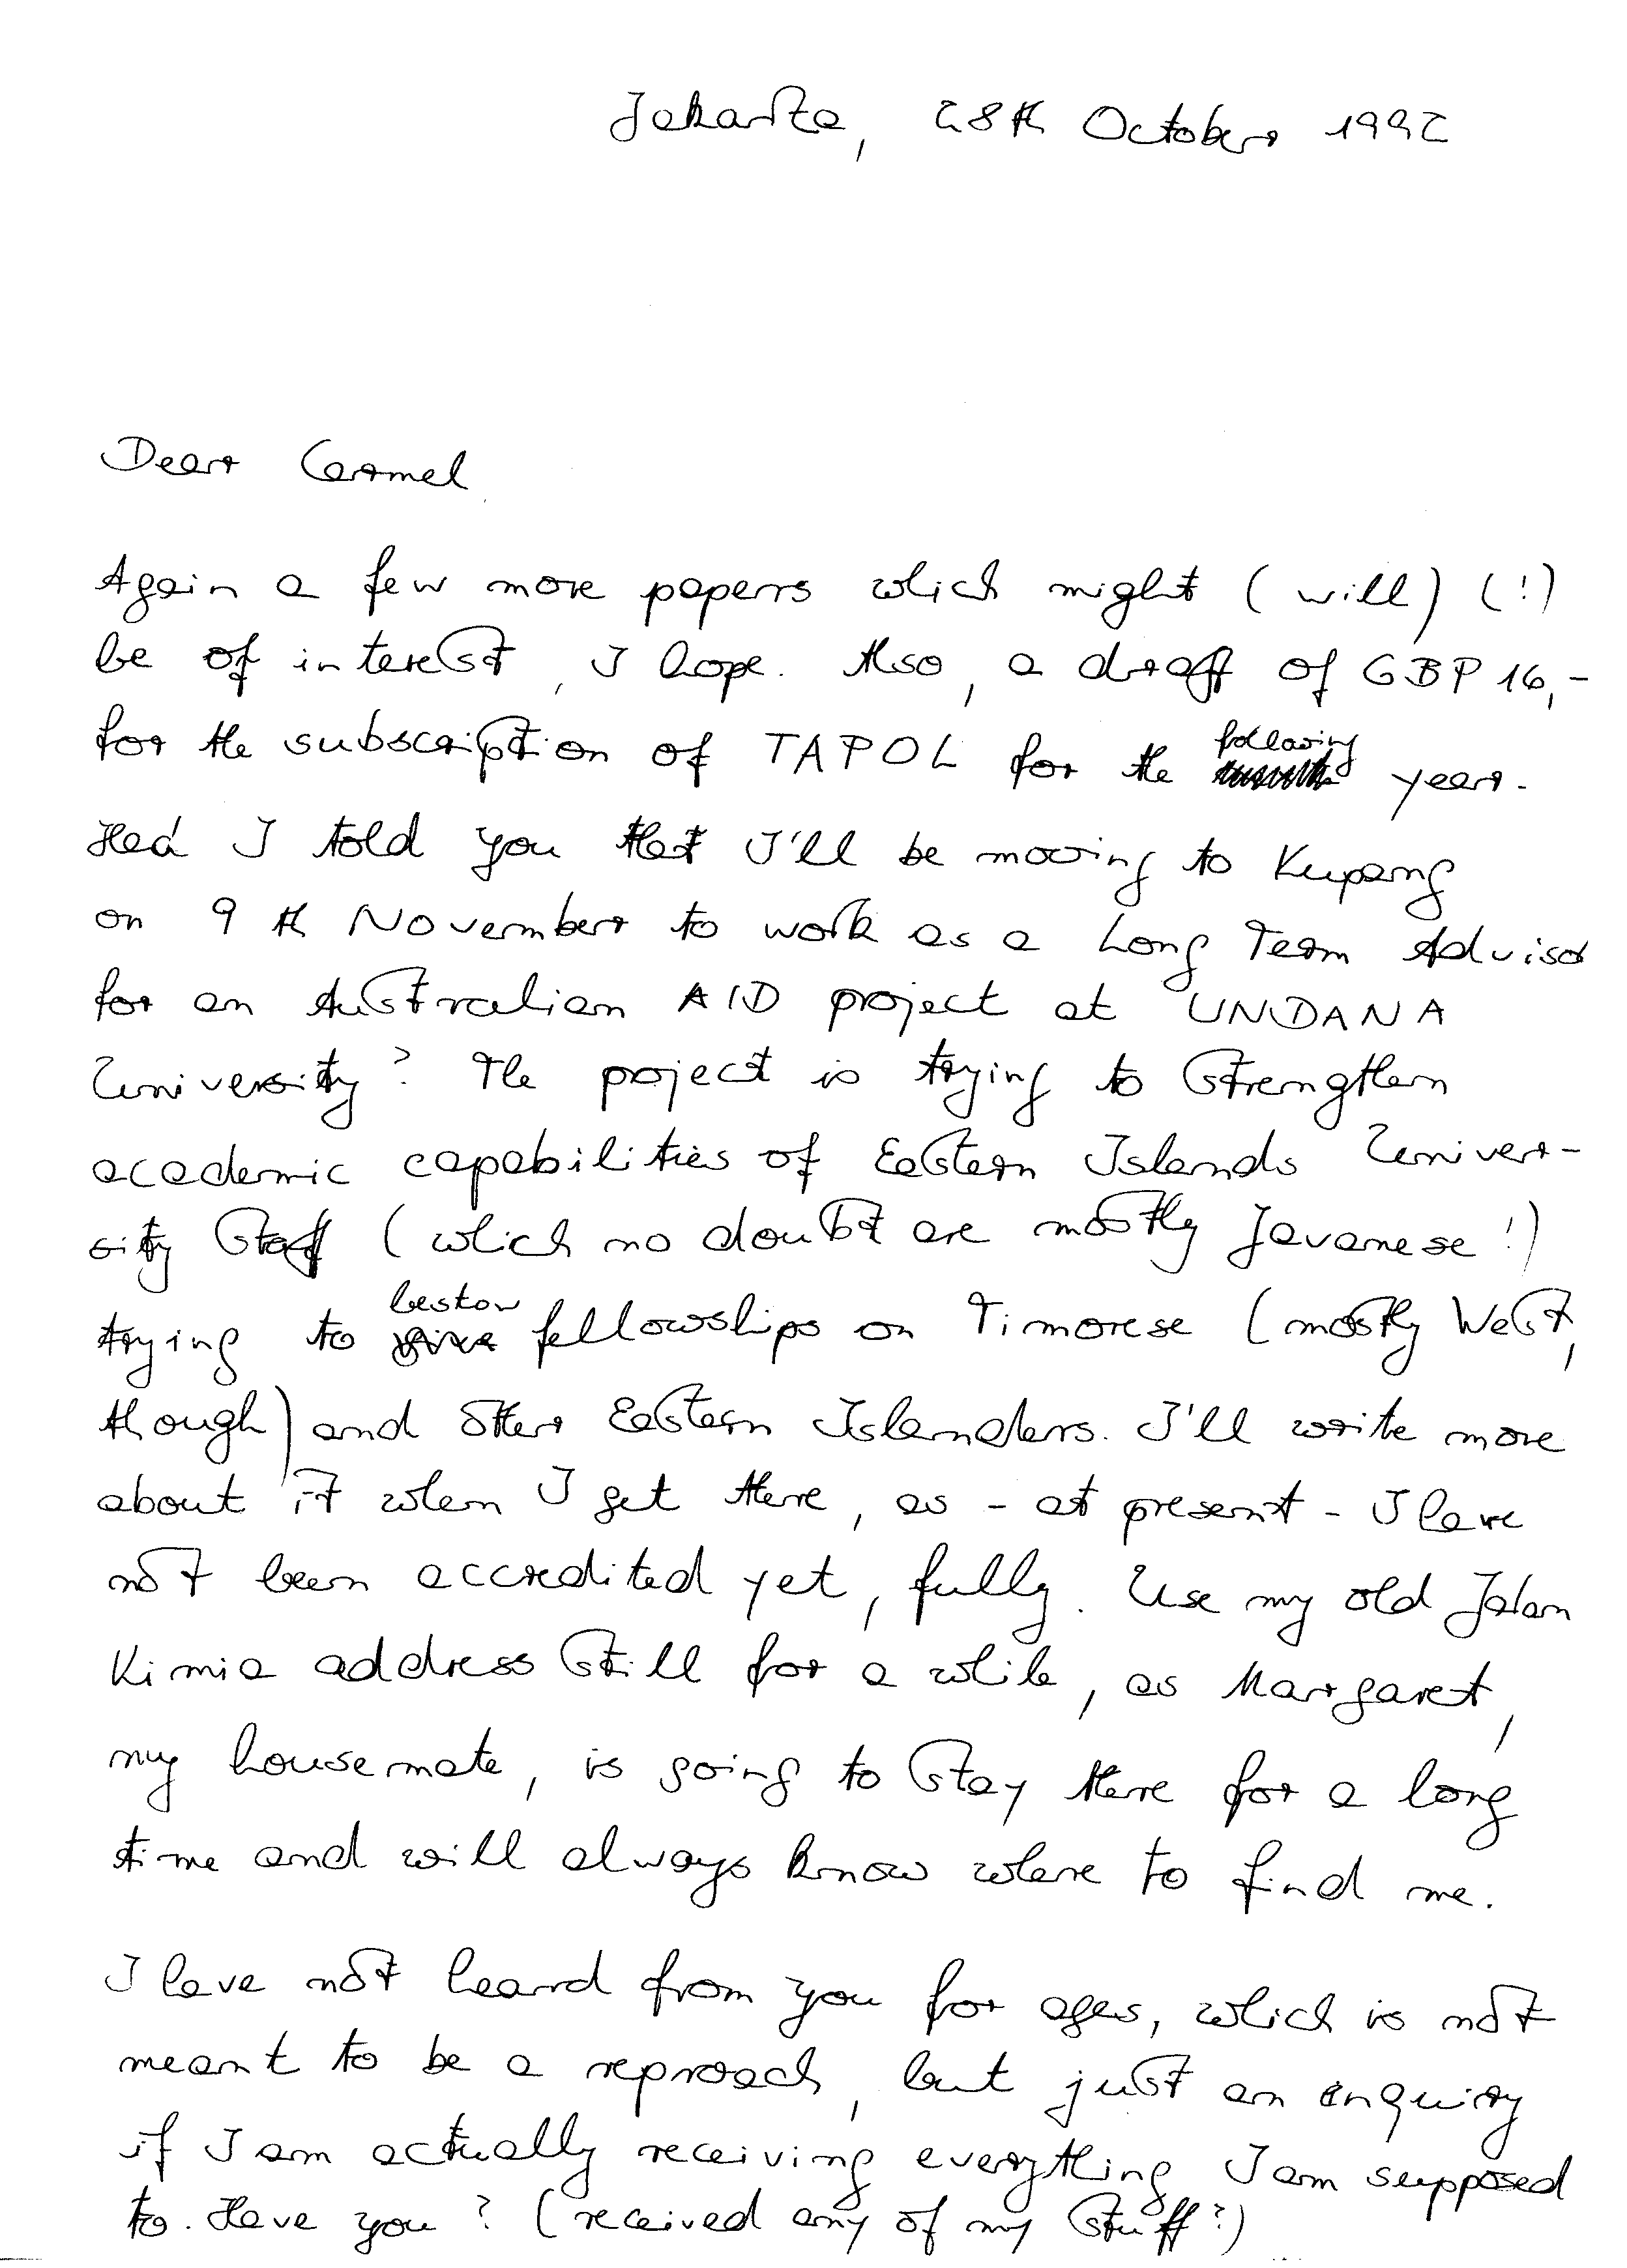 Jakarta, 28th October 1992
Dear Carmel
Again a few more papers which might (will) (!)
be of interest, I hope. Also, a draft of GBP 16,-
for the subscription of TAPOL for the following year.
Had I told you that I'll be moving to Kupang
on 9th November to work as a Long Term Advisor
for an Australian AID project at UNDANA
University? The project is trying to strengthen
academic capabilities of Eastern Islands Univer-
sity Staff (which no doubt are mostly Javanese!)
trying to bestow fellowships on Timorese (mostly West,
though) and other Eastern Islanders. I'll write more
about it when I get there, as - at present - I have
not been accredited yet, fully. Use my old Jalan
Kimia address still for a while, as Margaret,
my housemate, is going to stay there for a long
time and will always know where to find me.
I have not heard from you for ages, which is not
meant to be a reproach, but just an enquiry
if I am actually receiving everything I am supposed
to. Have you? (received any of my stuff?)